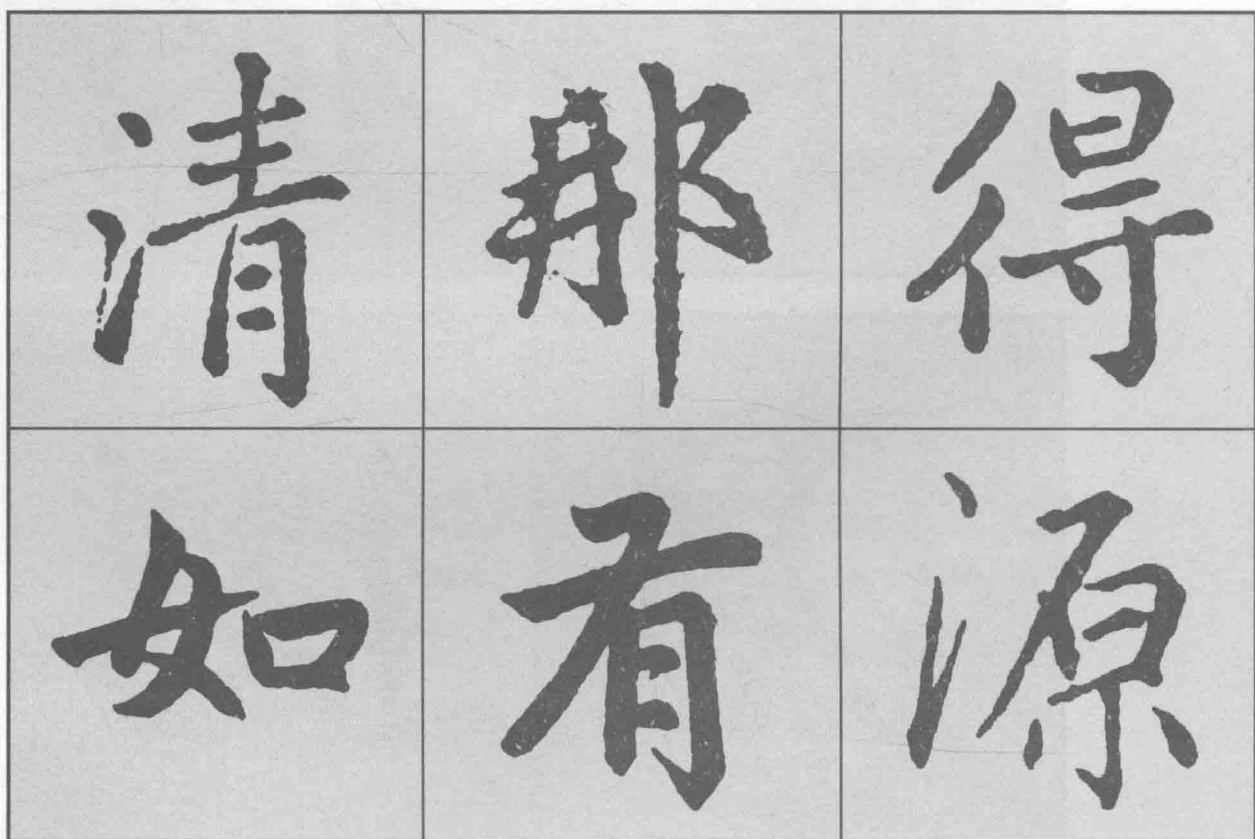 清那得
如有源